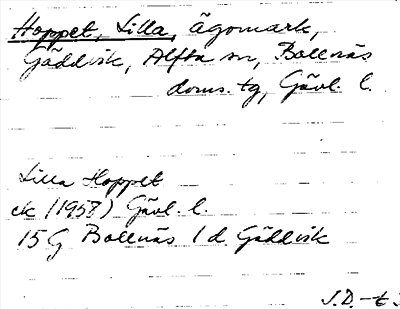 Hoppet, Lilla, ägomark,
Gäddvik, Alfta sn, Bollnäs
doms. tg, Gävl. l.
Lilla Hoppet
ek (1958) Gävl. l.
15G Bollnäs 1 d Gäddvik
J.D.-t